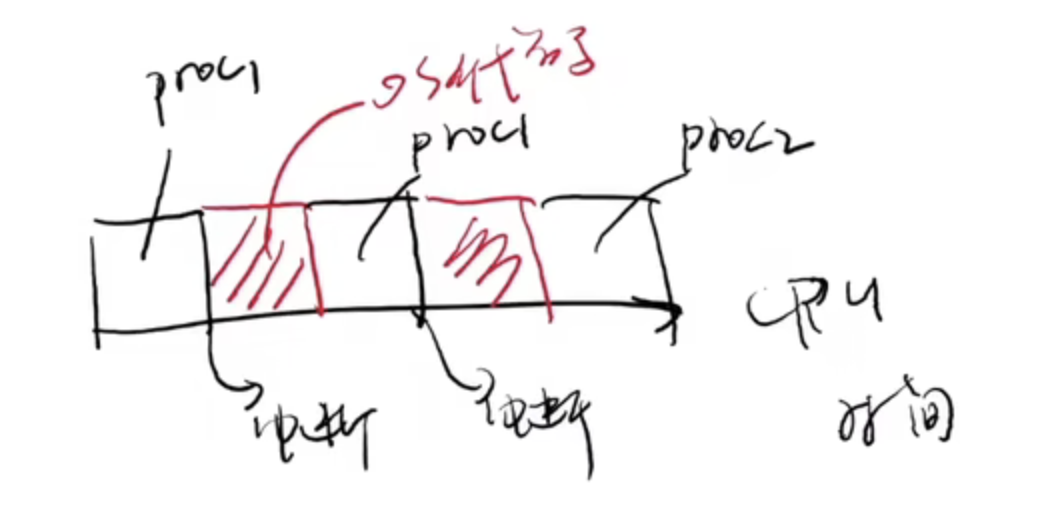 proc1
OS代码
proc1
proc2
CPU
时间
中断
中断